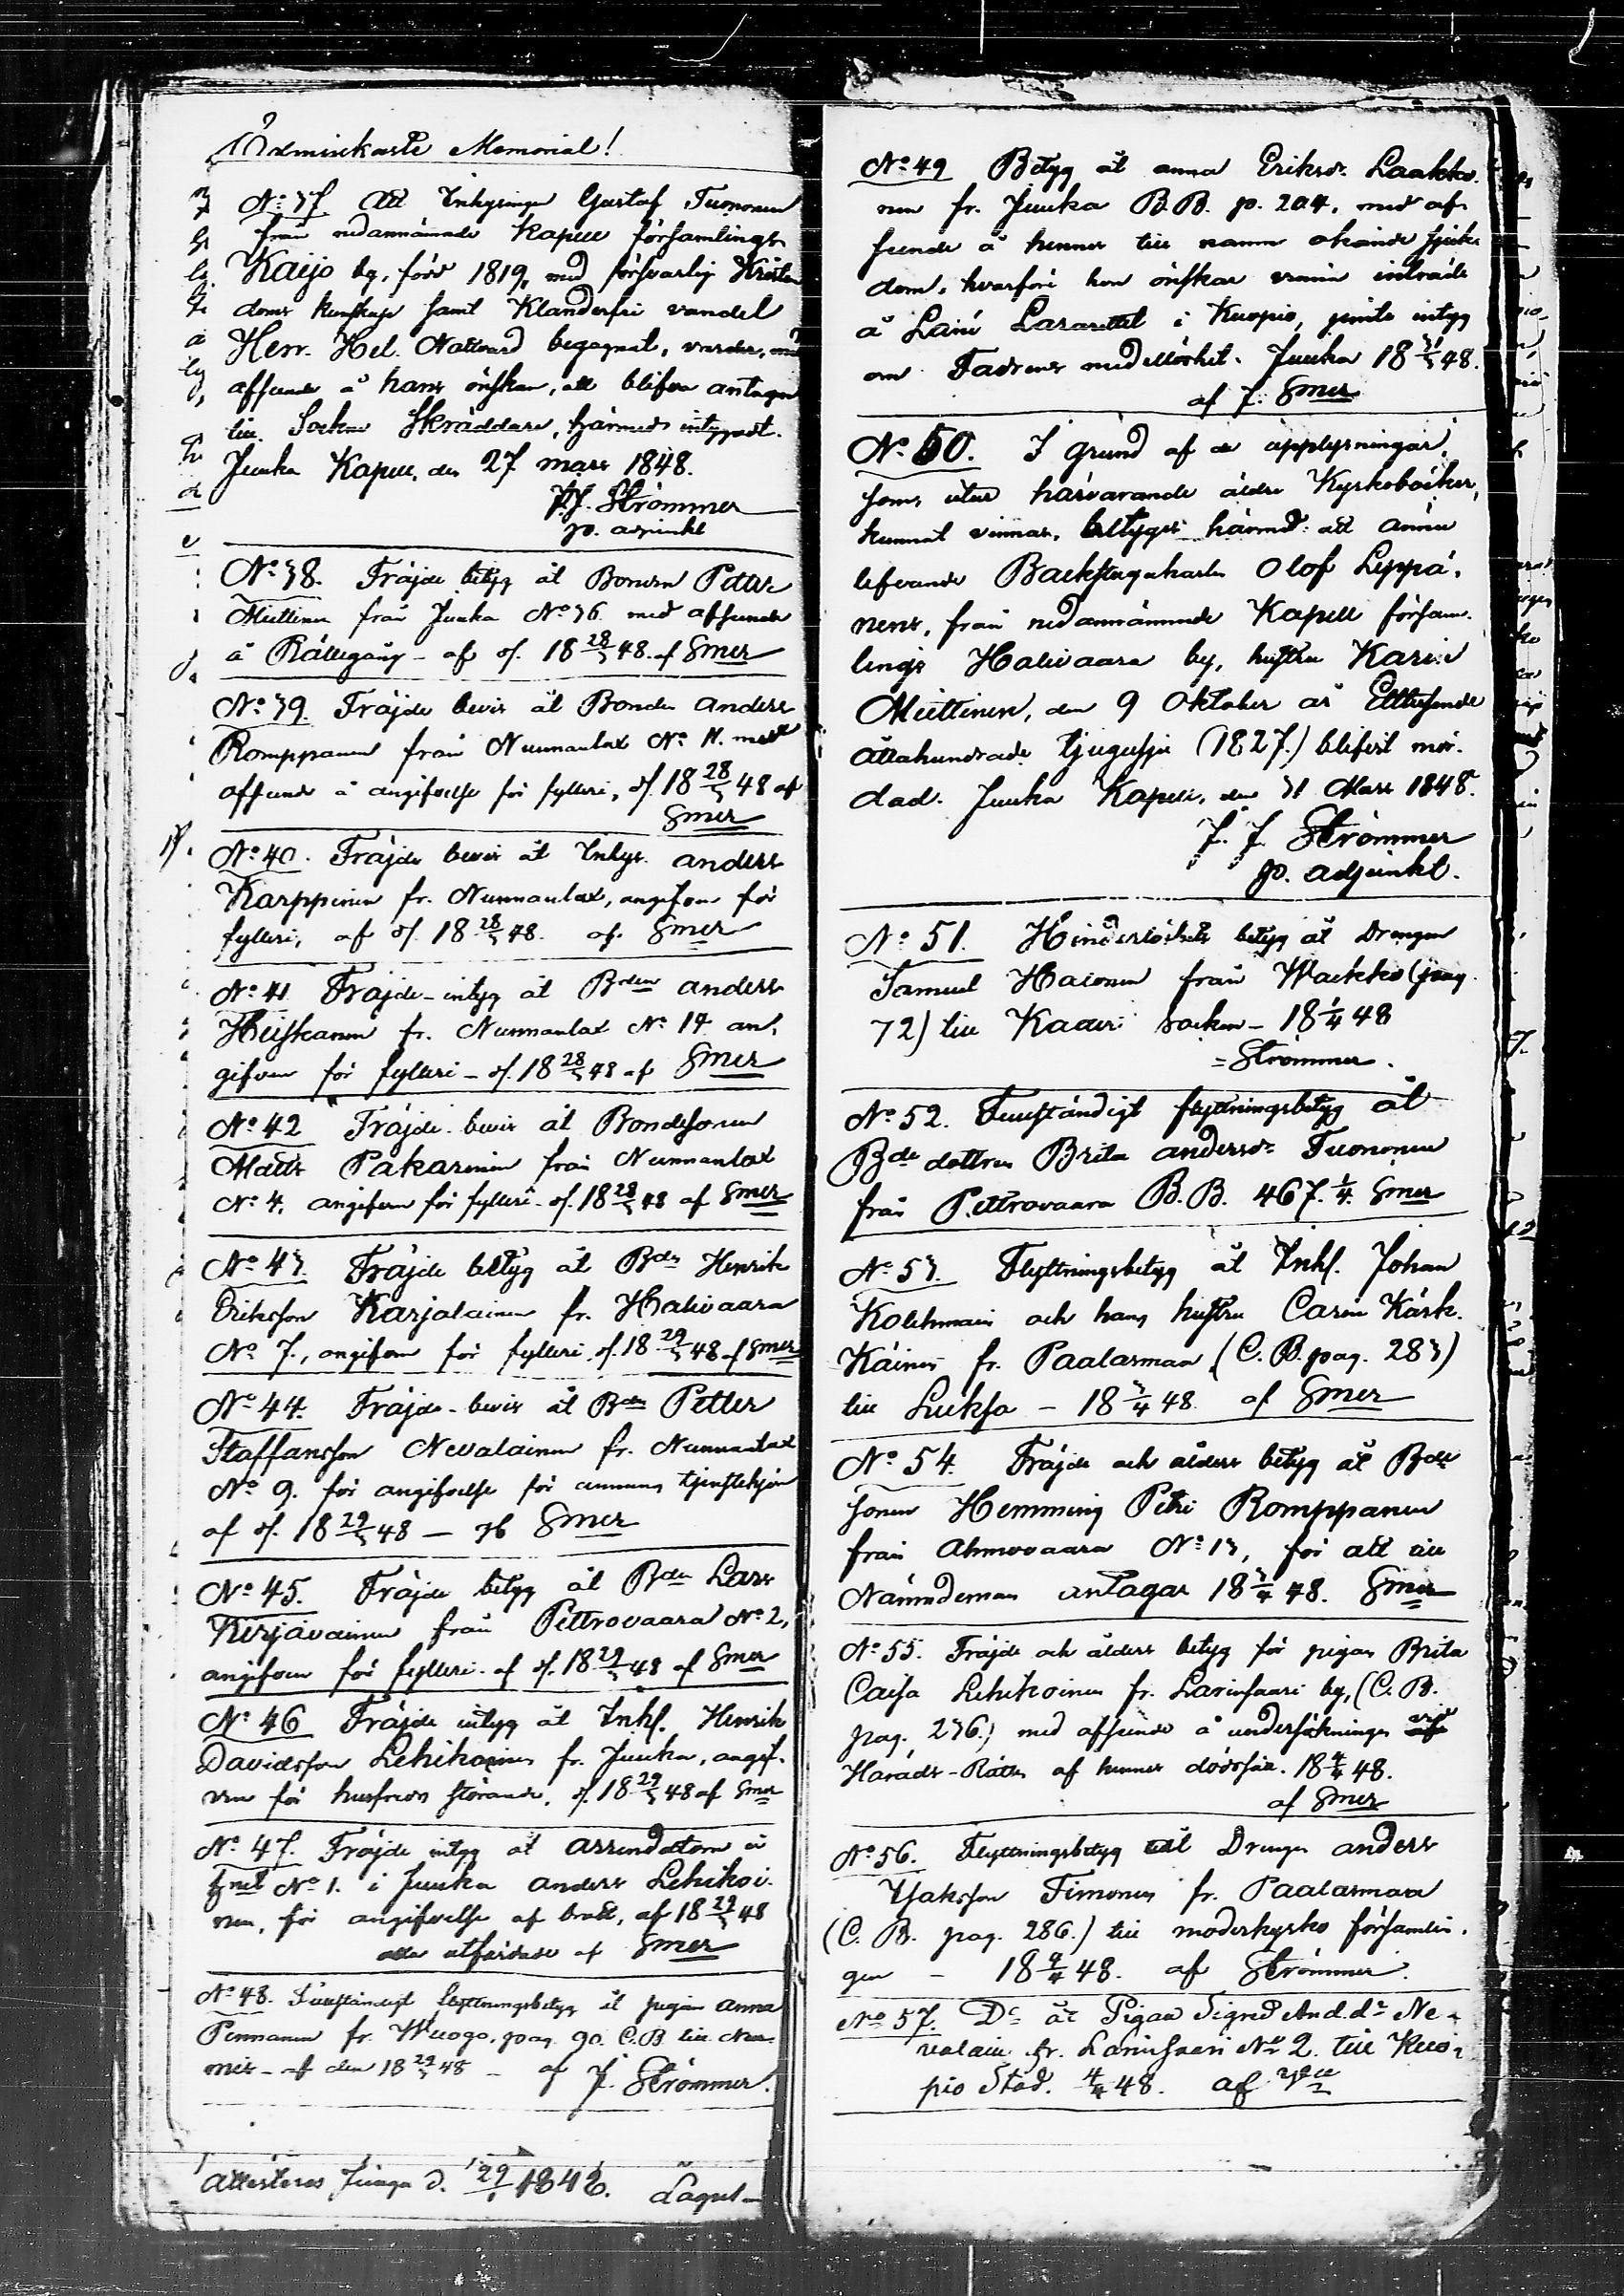 Ödmiukaste Memorial!
No 37 Att Inhysingen Gustaf Tuononen
från nedannämnde Kapell församlings
Kaijo by, född 1819, med försvarlig Kristen
doms kunskap samt Klanderfri vandel
Herr. Hel. Nattvard begagnat, varder, med
afseende å hans önskan, att blifva antagen
till Socken Skräddare, härmed intygadt.
Juuka Kapell, den 27 mars 1848.
J. J. Strömmer
p. adjunkt
No 38. Fräjde betyg åt Bonden Petter
Miettinen från Juuka No 36 med afseende
å Rättegång - af d. 18 28/3 48. af Smer
No 39. Fräjde bevis åt Bonden Anders
Romppanen från Nunnanlax No 11. med
afseende å angifvelse för fylleri, d. 18 28/3 48 af
Smer
No 40. Fräjde bevis åt Inhys. Anders
Karppinen fr. Nunnanlax, angifven för
fylleri, af d. 18 28/3 48. af Smer
No 41 Fräjde-intyg åt Bden Anders
Heiskanen fr. Nunnanlax No 14 an-
gifven för fylleri - d. 18 28/3 48 af Smer
No 42 Fräjde bevis åt Bondesonen
Matts Pakarinen från Nunnanlax
No 4, angifven för fylleri - d. 18 28/3 48 af Smer
No 43. Fräjde betyg åt Bden Henrik
Eriksson Karjalainen fr. Halivaara
No 7., angifven för fylleri d. 18 29/3 48 af Smer
No 44. Fräjde-bevis åt Bden Petter
Staffansson Nevalainen fr. Nunnanlax
No 9. för angifvelse för tjensthjon
af d. 18 29/3 48 — Smer
No 45. Fräjde betyg åt Bden Lars
Kirjavainen från Pettrovaara No 2,
angifven för fylleri - af d. 18 29/3 48 af Smer
No 46 Fräjde intyg åt Inhs. Henrik
Davidsson Lehikoinen fr. Juuka, angif-
ven för husfreds störande, d. 18 29/3 48 af Smer
No 47. Fräjde intyg åt Arrendatorn å
No 1. i Juuka Anders Lehikoi-
nen, för angifvelse af brott, af 18 29/3 48
alla utfärdade af Smer
No 48. Fullständigt flyttningsbetyg åt pigan Anna
Pennanen fr. Wuogo, pag. 90. C.B till Nur-
mis - af den 18 29/3 48 - af J. Strömmer.
Attesteras Juuga d. 29 1848. Lagus
No 49 Betyg åt Anna Eriksdr Laakko-
nen fr. Juuka B.B. p. 204, med af-
seende å hennes till namn okände sjuk-
dom, hvarföre hon önskar vinna inträde
å Läns Lazarettet i Kuopio, jemte intyg
om Fadrens medellöshet. Juuka 18 31/3 48.
af J. Smer
No 50. I grund af de upplysningar,
som, utur härvarande äldre Kyrkoböcker,
kunnat vinnas, betygas härmed: att ännu
lefvande Backstugukarlen Olof Leppä-
nens, från nedannämnde Kapell försam-
lings Halivaara by, hustru Karin
Miettinen, den 9 Oktober år Ettusende
åttahundrade tjugusju (1827.) blifvit mör-
dad. Juuka Kapell, den 31 Mars 1848.
J. J. Strömmer
p. adjunkt.
No 51. Hinderlöshets betyg åt Drengen
Samuel Haionen från Waikko (pag.
72) till Kaavi socken - 18 1/4 48
= Strömmer.
No 52. Fullständigt flyttningsbetyg åt
Bde dottren Brita Andersdr Tuononen
från Pettrovaara B.B. 467. 1/4. Smer
No 53. Flyttningsbetyg åt Inhs. Johan
Kolehmain och hans hustru Carin Kärk-
käinen fr. Paalasmaa, (C.B. pag. 283)
till Lieksa - 18 3/4 48. af Smer
No 54. Fräjde och ålders betyg åt Bde
sonen Hemming Petri Romppanen
från Ahmovaara No 13, för att till
Nämndeman antagas 18 3/4 48. Smer
No 55. Fräjde och ålders betyg för pigan Brita
Caisa Lehikoinen fr. Larinsaari by, (C.B.
pag. 236.) med afseende å undersökningen vid
Härads-Rätten af hennes dödssätt. 18 4/4 48.
af Smer
No 56. Flyttningsbetyg åt Drengen Anders
Isaksson Timonen fr. Paalasmaa
(C.B. pag. 286.) till moderkyrko församlin-
gen - 18 4/4 48. af Strömmer.
No 57. Do åt Pigan Signed And.dr Ne-
valain fr. Larinsaari No 2. till Kuo-
pio Stad. 4/4 48. af